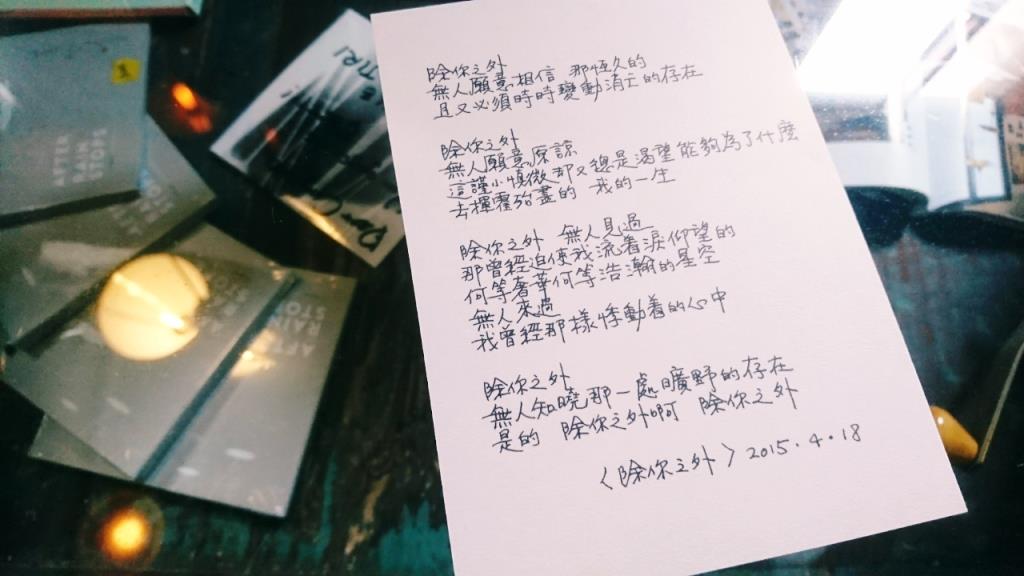 除你之外
無人願意相信 那恆久的
且又必須時時變動消亡的存在
除你之外
無人願意原諒
這謹小慎微 那又總是渴望能夠為了什麼
去揮霍殆盡的 我的一生
除你之外 無人見過
那曾經迫使我流著淚仰望的
何等奢華何等浩瀚的星空
無人來過
我曾經那樣悸動着的心中
除你之外
無人知曉那一處曠野的存在
是的 除你之外啊 除你之外
〈除你之外〉2015.4.18
AFTER
RAIN
STOPS
AFTER
RAIN
STO